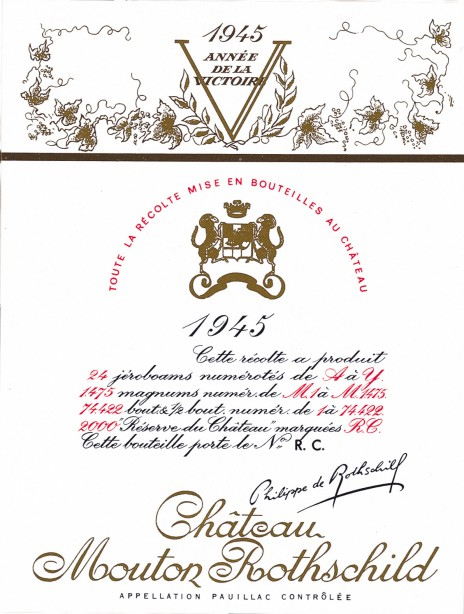 1945
ANNÉE
DE LA
VICTOIRE
TOUTE LA RÉCOLTE MISE EN BOUTEILLES AU CHÂTEAU
1945
Cette récolte a produit
24 jéroboams numérotés de A à Y.
1475 magnums numér. de M.1 à M.1475.
74422 bout. & 1/2 bout. numér. de 1 à 74422.
2000 "Réserve du Château" marquées R.C.
Cette bouteille porte le No R.C.
Philippe de Rothschild
Château
Mouton Rothschild
APPELLATION PAUILLAC CONTRÔLÉE